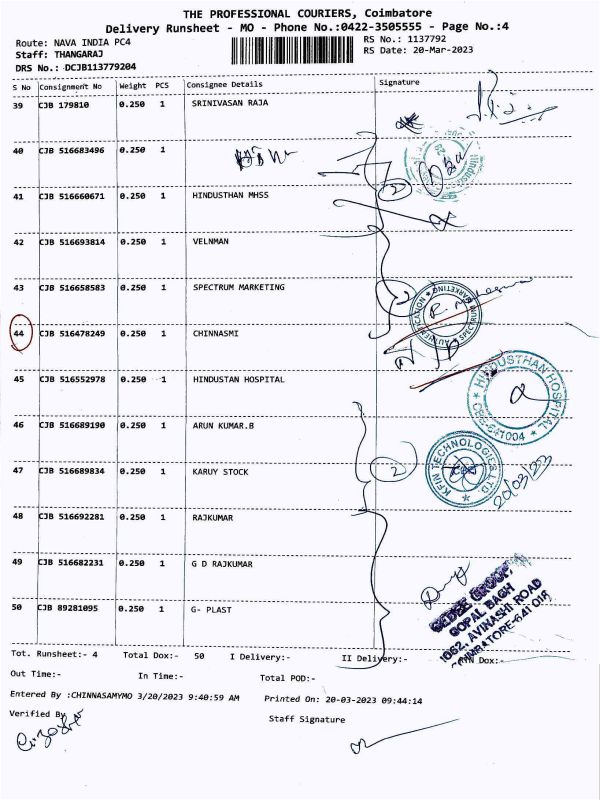 THE PROFESSIONAL COURIERS, Coimbatore
Delivery Runsheet - MO - Phone No.:0422-3505555 - Page No.:4
Route: NAVA INDIA PC4 RS No.: 1137792
Staff: THANGARAJ RS Date: 20-Mar-2023
DRS No.: DCJB113779204
S No Consignment No Weight PCS Consignee Details Signature
39 CJB 179810 0.250 1 SRINIVASAN RAJA
40 CJB 516683496 0.250 1
41 CJB 516660671 0.250 1 HINDUSTHAN MHSS
2
42 CJB 516693814 0.250 1 VELNMAN
43 CJB 516658583 0.250 1 SPECTRUM MARKETING
SPECTRUM MARKETING
44 CJB 516478249 0.250 1 CHINNASMI
45 CJB 516552978 0.250 1 HINDUSTAN HOSPITAL
HINDUSTHAN HOSPITAL
CBE-641004
46 CJB 516689190 0.250 1 ARUN KUMAR.B
47 CJB 516689834 0.250 1 KARUY STOCK
2
KFIN TECHNOLOGIES LTD.
20/03/23
48 CJB 516692281 0.250 1 RAJKUMAR
49 CJB 516682231 0.250 1 G D RAJKUMAR
50 CJB 89281095 0.250 1 G- PLAST
GEDEE GROUP,
GOPAL BAGH
1062, AVINASHI ROAD
COIMBATORE-641 018
Tot. Runsheet:- 4 Total Dox:- 50 I Delivery:- II Delivery:- Dox:-
Out Time:- In Time:- Total POD:-
Entered By :CHINNASAMYMO 3/20/2023 9:40:59 AM Printed On: 20-03-2023 09:44:14
Verified By Staff Signature